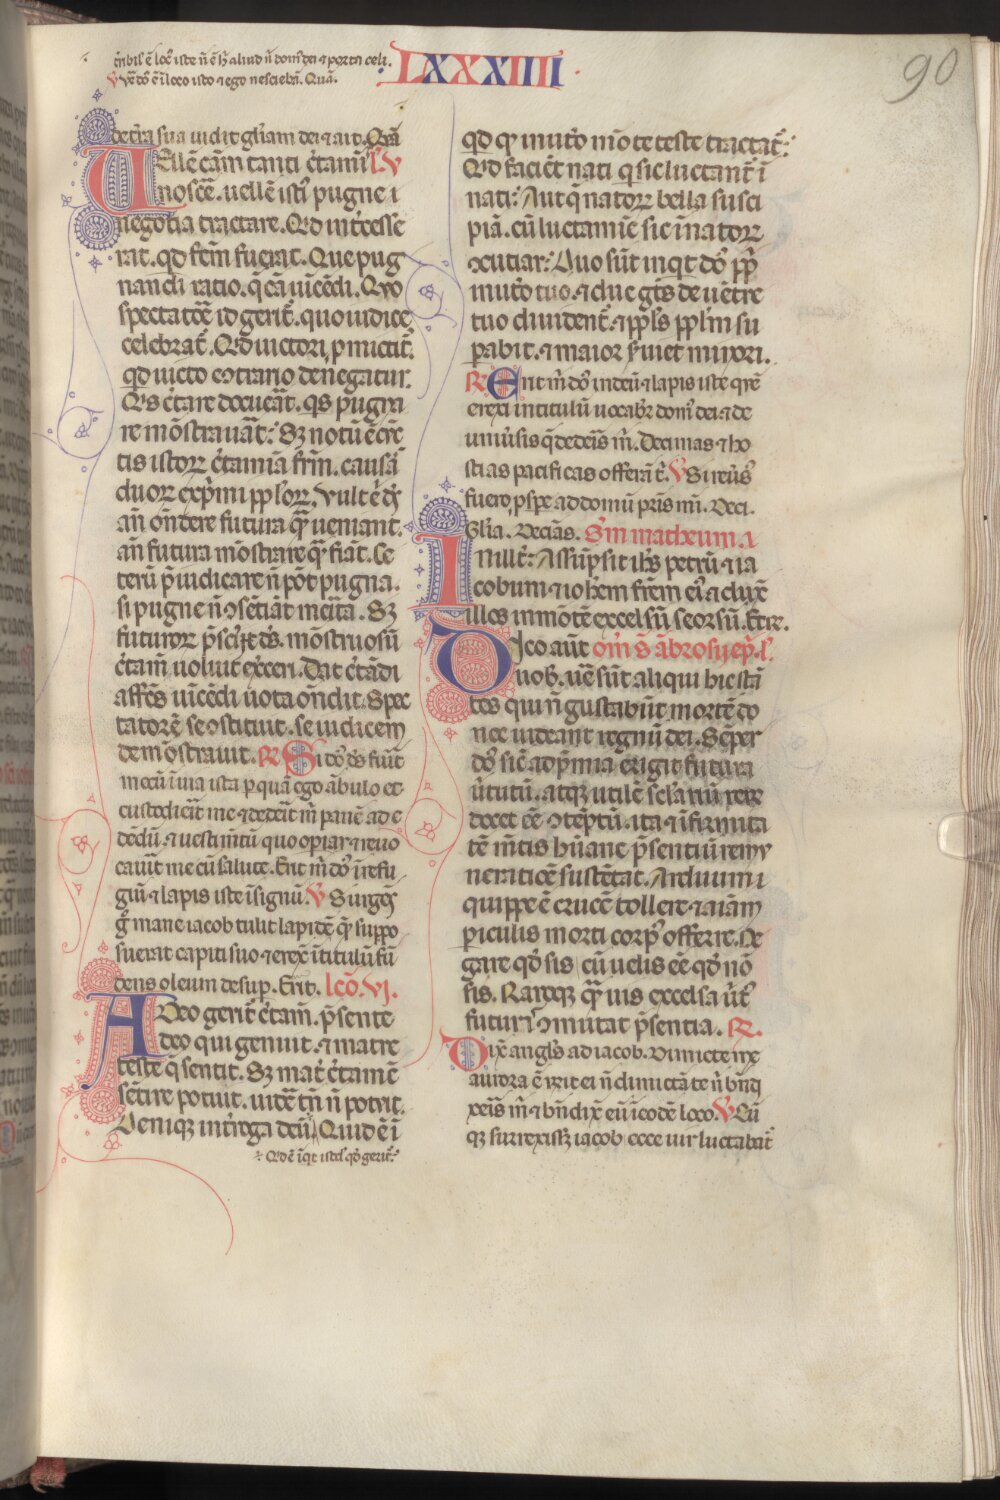 t̃ribił ẽ locꝰ iste ñ ẽ h̃ aliud ñ domꝰ dei ⁊ porta celi.
V̷ Ve᷑ dñs ẽ ĩ loco isto ⁊ ego nesciebã. Quã.
LXXXIIII
90
de tr̃a sua uidit gl̃iam dei ⁊ ait. Quã
Vellẽ cãm tanti c̃tamĩs L̃ V
noscẽ. uellẽ isti᷑ pugne i
negotia tractare. Qrd int̃resse
rat. qd fcm̃ fuerat. Que pug
nandi ratio. q̃ cã uicẽdi. Quo
spectatoẽ id gerit᷑. quo iudice
celebrat᷑. Qrd uictori ꝑmictit᷑.
qd uicto cont̃rario denegatur.
Qis c̃tare docueãt. qis pugna
re mõstrauãt: Sꝫ notũ ẽ c̃re
tis istorꝝ c̃tamina frm̃. causã
duorꝝ exp̃imi pplorꝝ. Vult ẽ d̃s
añ oñdere futura q̃ ueniant.
añ futura mõstrare q̃ fiãt. Ce
terũ p̃iudicare ñ põt pugna.
si pugne ñ ↄsẽtiãt merita. Sꝫ
futurorꝝ p̃sciꝰ ds̃. mõstruosũ
c̃tam̃ uoluit ex̃ceri. Dat c̃tãdi
affc̃s uicẽdi uota oñdit. Spec
tatorẽ se ↄstituit. se iudicem
demõstrauit. R̷ Si dñs ds̃ fuĩt
mecũ ĩ uia ista ꝑ quã ego ãbulo et
custodierit me ⁊ dederit m̃ panẽ ad e
dẽdũ. ⁊ uestim̃tũ quo opiar ⁊ reuo
cauit me cũ salute. Erit m̃ dñs ĩ refu
giũ ⁊ lapis iste ĩ signũ. V̷ Surgẽs
g̃ mane iacob tulit lapidẽ q̃ suppo
suerat capiti suo ⁊ erex̃ ĩ titulũ fũ
dens oleum desuꝑ. Erit. lc̃o. VJ.
Adeo gerit᷑ c̃tam̃. p̃sente
deo qui genuit. ⁊ matre
teste q̃ sentit. Sꝫ mat᷑ c̃tamẽ
sẽtire potuit. uidẽ tñ ñ potuit.
Denique int̃roga deũ. Quid ẽ ĩ
Qrd ẽ ĩqt istud qd gerit᷑:
qd q̃ mut̃o m̃o te teste tractat᷑:
Qrd faciẽt nati q̃ sic luctant᷑ ĩ
nati: Aut q̃ natorꝝ bella susci
piã. cũ luctamĩe sic ĩnatorꝝ
excutiar: Duo sũt inqt dñs ppl̃i
mut̃o tuo. ⁊ due gẽtes de uẽtre
tuo diuident᷑. ⁊ ppls̃ pplm̃ su
ꝑabit. ⁊ maior s̃uiet minori.
R̷ Erit m̃ dñs in deũ ⁊ lapis iste quẽ
erexi in titulũ uocabit᷑ domꝰ dei ⁊ de
uniũsis q̃ dederis m̃. Decimas ⁊ ho
stias pacificas offerã t̃. V̷ Si reũsꝰ
fuero ꝓspe ad domũ pris̃ mi. Deci.
Gl̃ia. Decĩas. Sm̃ matheum. ⁊
In ill t̃: Assũpsit ihs̃ petrũ ⁊ ia
cobum ⁊ ioh̃em frẽm eiꝰ ⁊ duxit
illos in mõtẽ excelsũ seorsũ. Et re.
Dico aut̃ om̃ s̃ ãbrosij ep̃. l̃.
uob. ue᷑ sũt aliqui hic stã
tes qui ñ gustabũt mortẽ do
nec uideant regnũ dei. Sẽper
dñs sic̃ ad p̃mia erigit futura
ũtutũ. atqꝫ utile sclariũ rerũ
docet eẽ ↄtẽptũ. ita ⁊ ĩfirmita
tẽ mẽtis hũane p̃sentiũ remu
neratiõe sustẽtat. Arduum
quippe ẽ crucẽ tollere ⁊ aĩam
ꝑiculis morti corpꝰ offerre. Ne
gare qd sis cũ uelis eẽ qd nõ
sis. Raroqꝫ q̃uis excelsa ũtꝰ
futuri ↄmutat p̃sentia. R̷.
Dixit angls̃ ad iacob. Dimicte me
aurora ẽ r̃dit ei ñ dimictã te ñ bñd
xeis m̃ ⁊ bñdix̃ eũ ĩ eodẽ loco. V̷ Cũ
qꝫ surrexissꝫ iacob ecce uir luctabat᷑